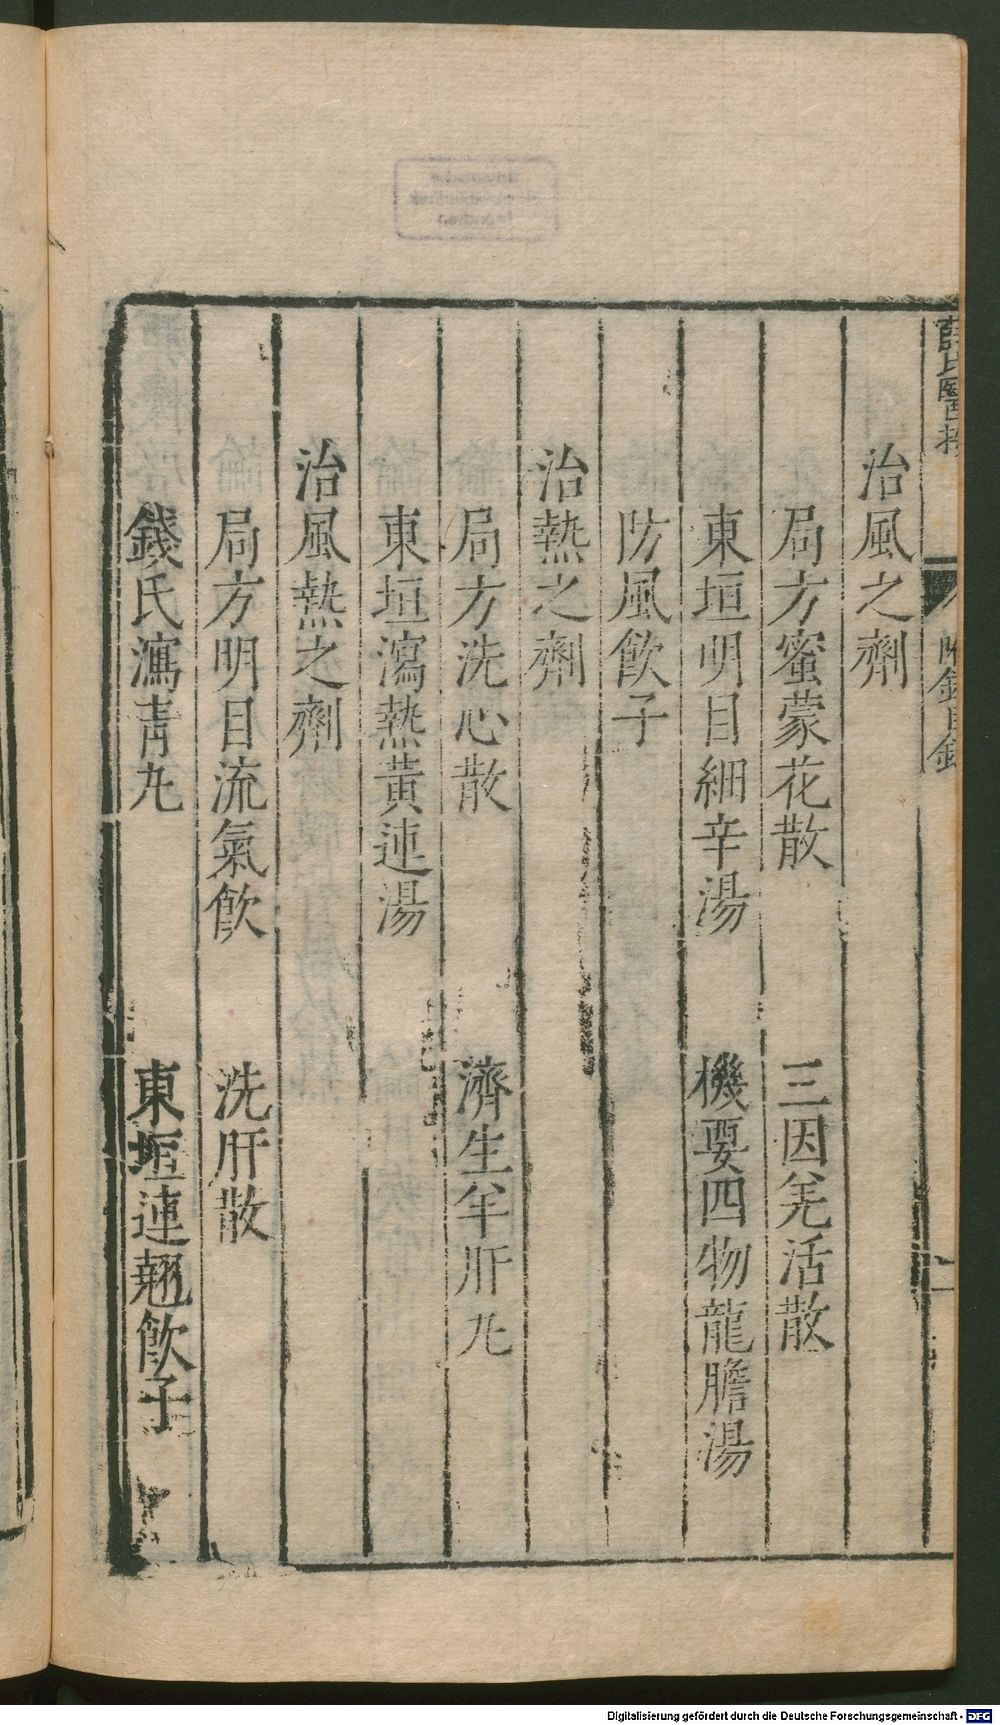 治風之劑
局方蜜蒙花散　三因羌活散
東垣明目細辛湯　機要四物龍膽湯
防風飲子
治熱之劑
局方洗心散　濟生羊肝丸
東垣瀉熱黃連湯
治風熱之劑
局方明目流氣飲　洗肝散
錢氏瀉青丸　東垣連翹飲子
薛氏醫按
附錄目錄
Digitalisierung gefördert durch die Deutsche Forschungsgemeinschaft - DFG